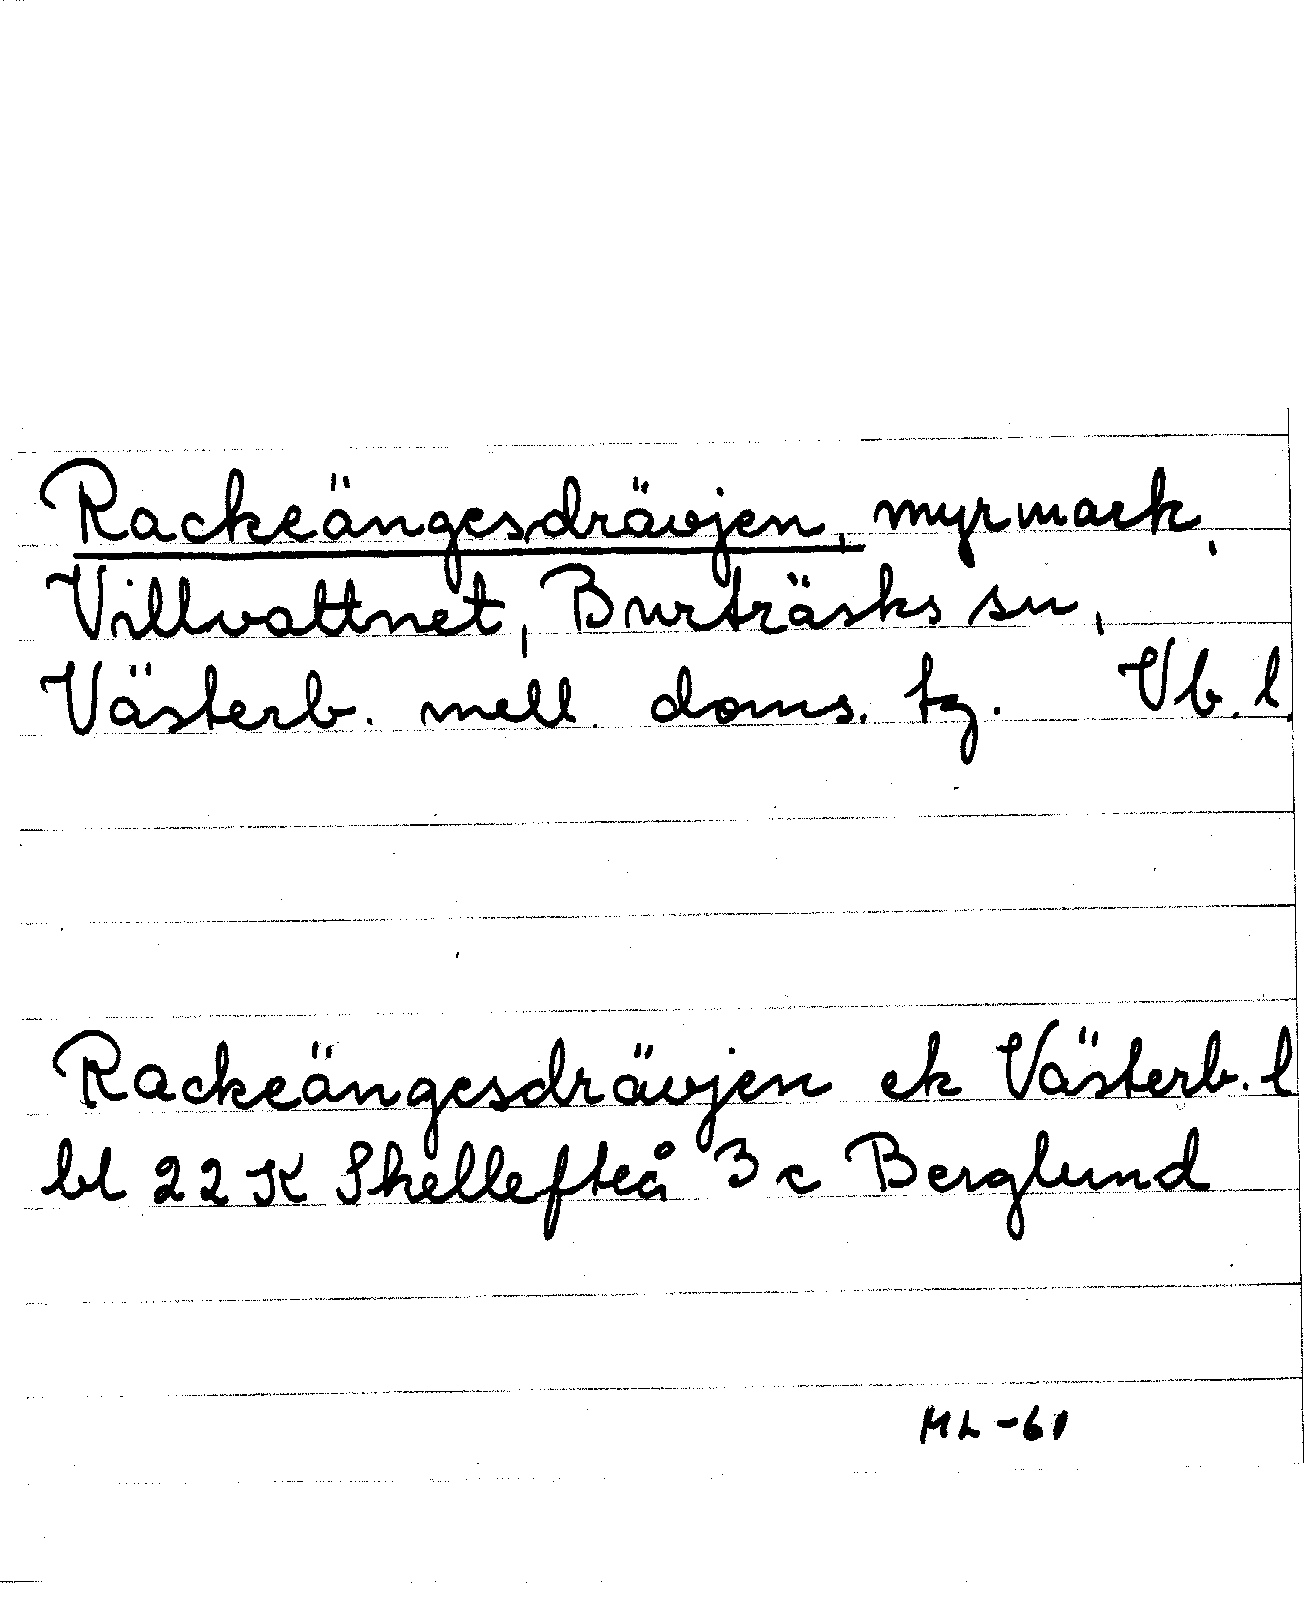 Rackeängesdrävjen, myrmark,
Villvattnet, Burträsks sn,
Västerb. mell. doms. tg. Vb. l.
Rackeängesdrävjen ek Västerb. l
bl 22 K Skellefteå 3 c Berglund
ML -61